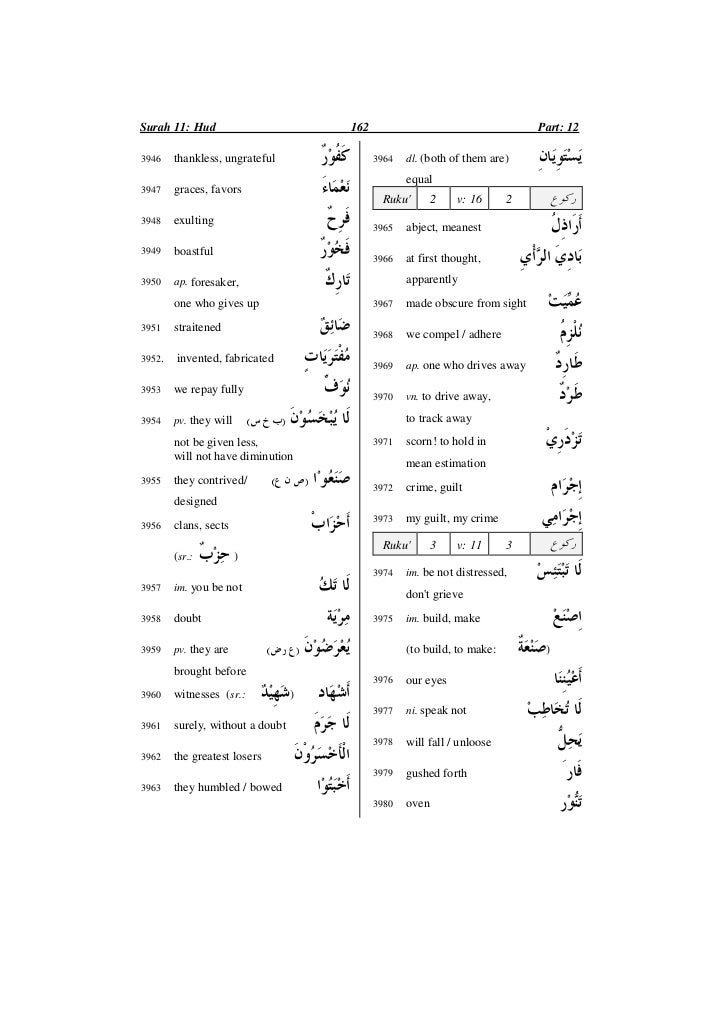 Surah 11: Hud 162 Part: 12
3946 thankless, ungrateful كَفُوْرٌ
3947 graces, favors نَعْمَاءَ
3948 exulting فَرِحٌ
3949 boastful فَخُوْرٌ
3950 ap. foresaker, تَارِكٌ
one who gives up
3951 straitened ضَائِقٌ
3952. invented, fabricated مُفْتَرَيَاتٍ
3953 we repay fully نُوَفِّ
3954 pv. they will (ب خ س) لَا يُبْخَسُوْنَ
not be given less,
will not have diminution
3955 they contrived/ (ص ن ع) صَنَعُوْا
designed
3956 clans, sects أَحْزَابْ
(sr.: حِزْبٌ )
3957 im. you be not لَا تَكُ
3958 doubt مِرْيَة
3959 pv. they are (ع ر ض) يُعْرَضُوْنَ
brought before
3960 witnesses (sr.: شَهِيْدٌ) أَشْهَاد
3961 surely, without a doubt لَا جَرَمَ
3962 the greatest losers الْأَخْسَرُوْنَ
3963 they humbled / bowed أَخْبَتُوْا
3964 dl. (both of them are) يَسْتَوِيَانِ
equal
Ruku' 2 v: 16 2 ركوع
3965 abject, meanest أَرَاذِلُ
3966 at first thought, بَادِيَ الرَّأْيِ
apparently
3967 made obscure from sight عُمِّيَتْ
3968 we compel / adhere نُلْزِمُ
3969 ap. one who drives away طَارِدٌ
3970 vn. to drive away, طَرْدٌ
to track away
3971 scorn! to hold in تَزْدَرِيْ
mean estimation
3972 crime, guilt إِجْرَام
3973 my guilt, my crime إِجْرَامِي
Ruku' 3 v: 11 3 ركوع
3974 im. be not distressed, لَا تَبْتَئِسْ
don't grieve
3975 im. build, make اِصْنَعْ
(to build, to make: صَنْعَةٌ)
3976 our eyes أَعْيُنِنَا
3977 ni. speak not لَا تُخَاطِبْ
3978 will fall / unloose يَحِلُّ
3979 gushed forth فَارَ
3980 oven تَنُّوْر